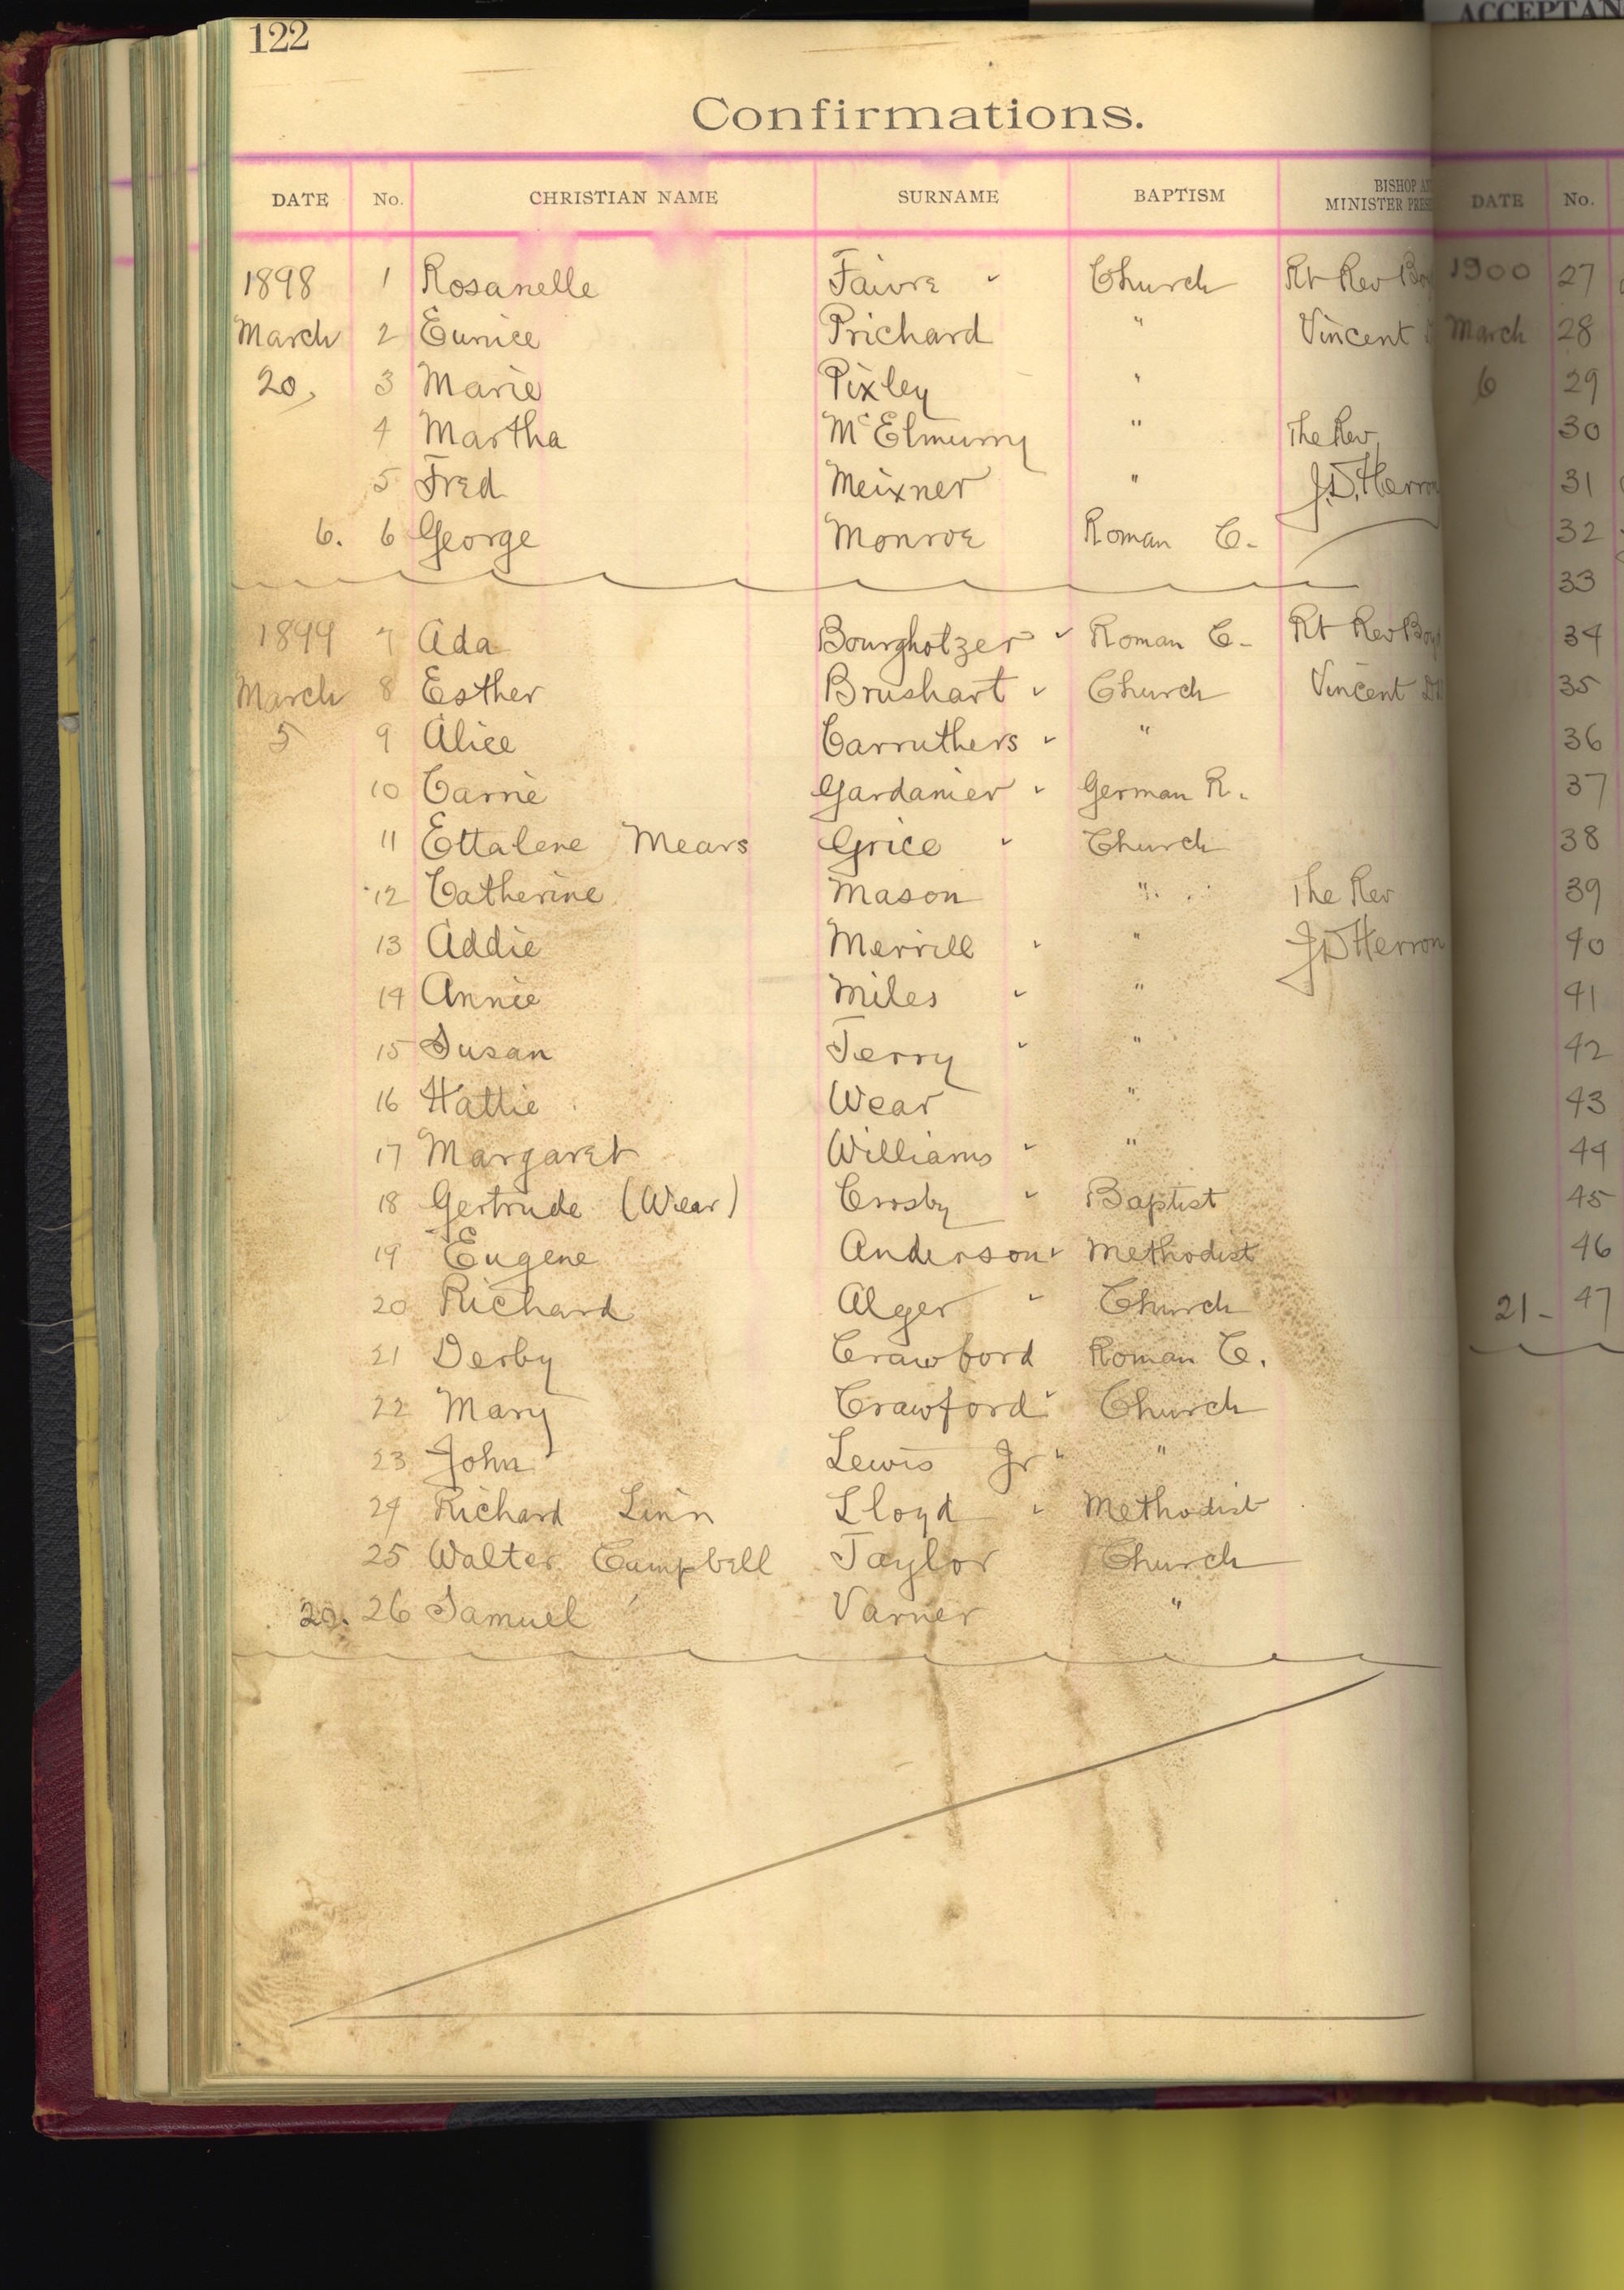 ACCEPTAN
122
Confirmations.
DATE No. CHRISTIAN NAME SURNAME BAPTISM BISHOP AN
MINISTER PRES
DATE No.
1898 1 Rosanelle Faivre Church Rt Rev Boy
March 2 Eunice Prichard " Vincent
20, 3 Marie Pixley "
4 Martha McElmurry " The Rev
5 Fred Meixner " J.D. Herron
6. 6 George Monroe Roman C.
1899 7 Ada Bourgholtzer Roman C. Rt Rev Boyd
March 8 Esther Brushart Church Vincent
5 9 Alice Carruthers "
10 Carrie Gardanier German R.
11 Ettalene Mears Grice Church
12 Catherine Mason " The Rev
13 Addie Merrill " J.D Herron
14 Annie Miles "
15 Susan Terry "
16 Hattie Wear "
17 Margaret Williams "
18 Gertrude (Wear) Crosby Baptist
19 Eugene Anderson Methodist
20 Richard Alger Church
21 Derby Crawford Roman C.
22 Mary Crawford Church
23 John Lewis Jr "
24 Richard Linn Lloyd Methodist
25 Walter Campbell Taylor Church
20. 26 Samuel Varner "
1900 27
March 28
6 29
30
31
32
33
34
35
36
37
38
39
40
41
42
43
44
45
46
21- 47